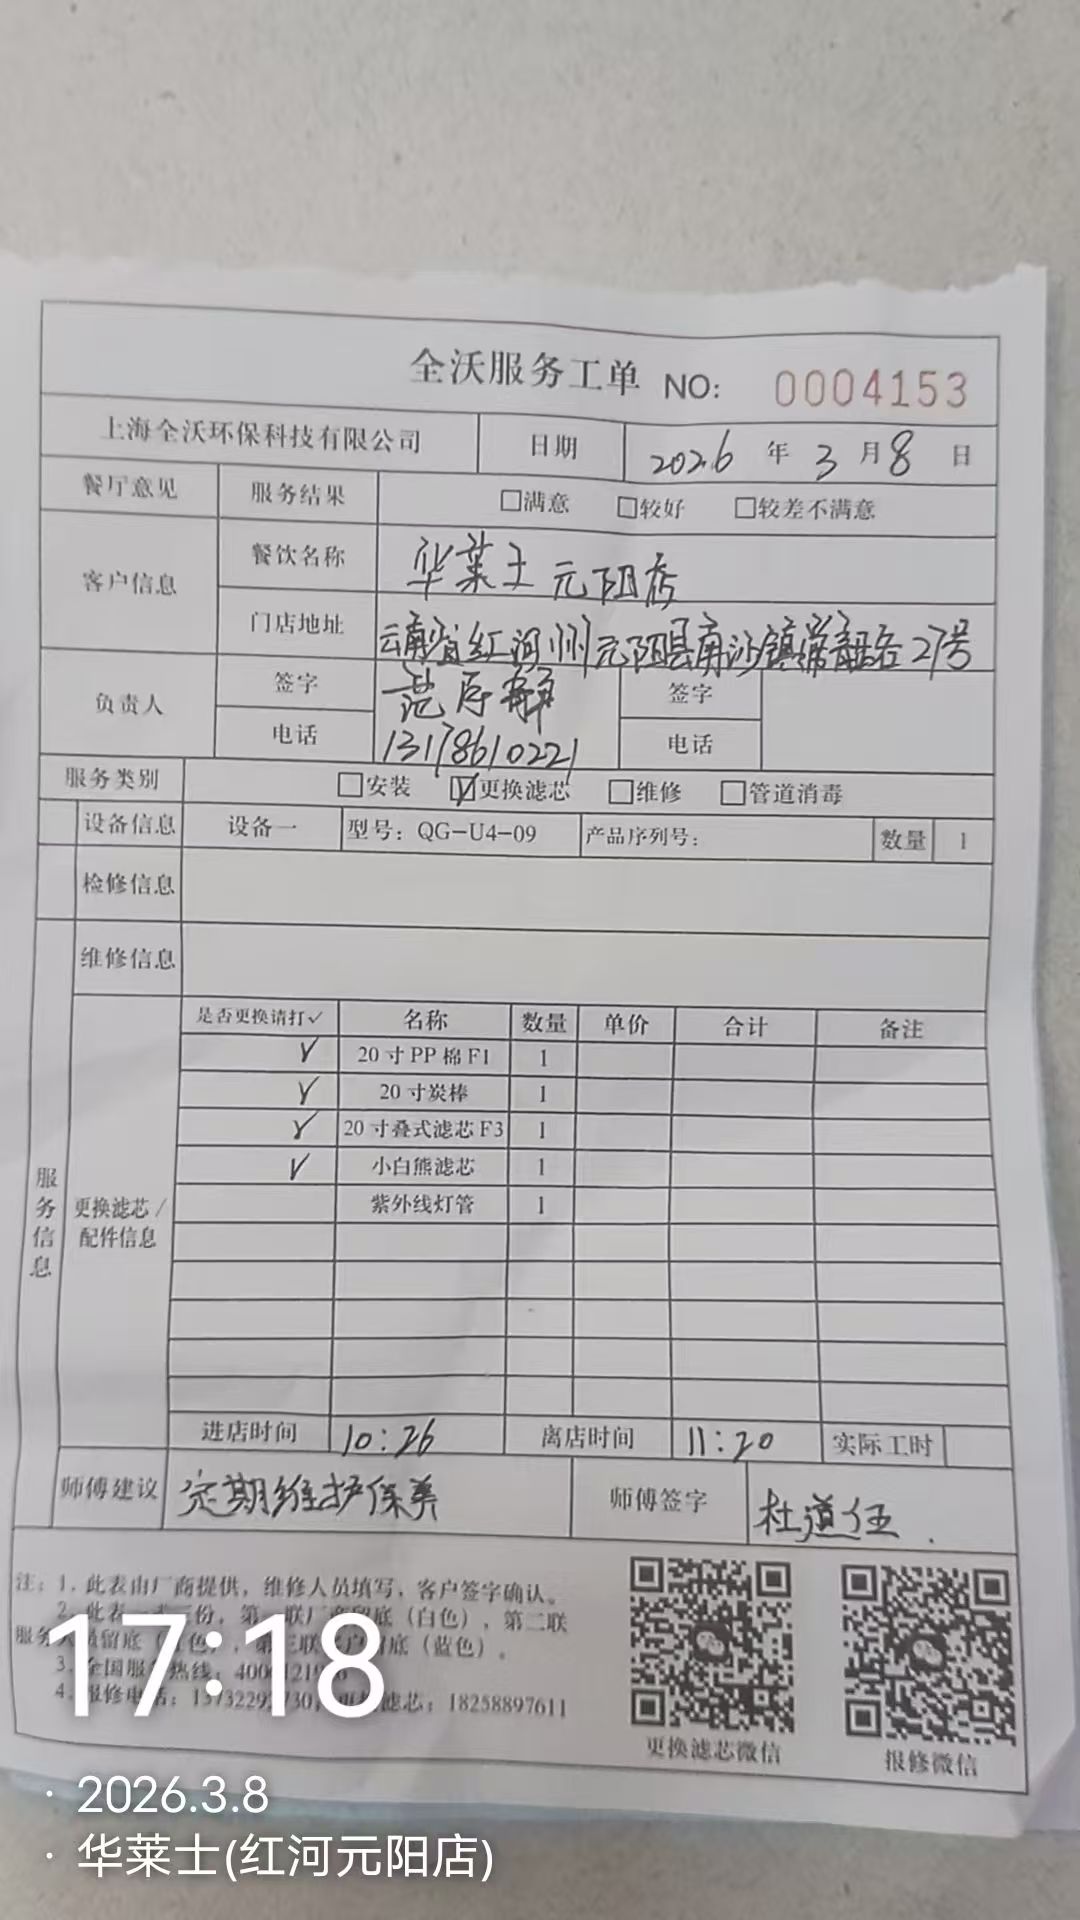 全沃服务工单 NO: 0004153
上海全沃环保科技有限公司 日期 2026 年 3 月 8 日
餐厅意见 服务结果 □满意 □较好 □较差不满意
客户信息 餐饮名称 华莱士元阳店
门店地址 云南省红河州元阳县南沙镇常青路27号
负责人 签字 范 签字
电话 13178610221 电话
服务类别 □安装 ☑更换滤芯 □维修 □管道消毒
设备信息 设备一 型号：QG-U4-09 产品序列号： 数量 1
检修信息
维修信息
服务信息
更换滤芯/配件信息
是否更换请打✓ 名称 数量 单价 合计 备注
✓ 20寸PP棉F1 1
✓ 20寸炭棒 1
✓ 20寸叠式滤芯F3 1
✓ 小白熊滤芯 1
紫外线灯管 1
进店时间 10:26 离店时间 11:20 实际工时
师傅建议 定期维护保养 师傅签字 杜道伍
注：1. 此表由厂商提供，维修人员填写，客户签字确认。
2. 此表一式三份，第一联厂商留底（白色），第二联
服务人员留底（色），第三联客户留底（蓝色）。
3. 全国服务热线：
4. 报修电话： 更换滤芯：18258897611
更换滤芯微信 报修微信
17:18
· 2026.3.8
· 华莱士(红河元阳店)